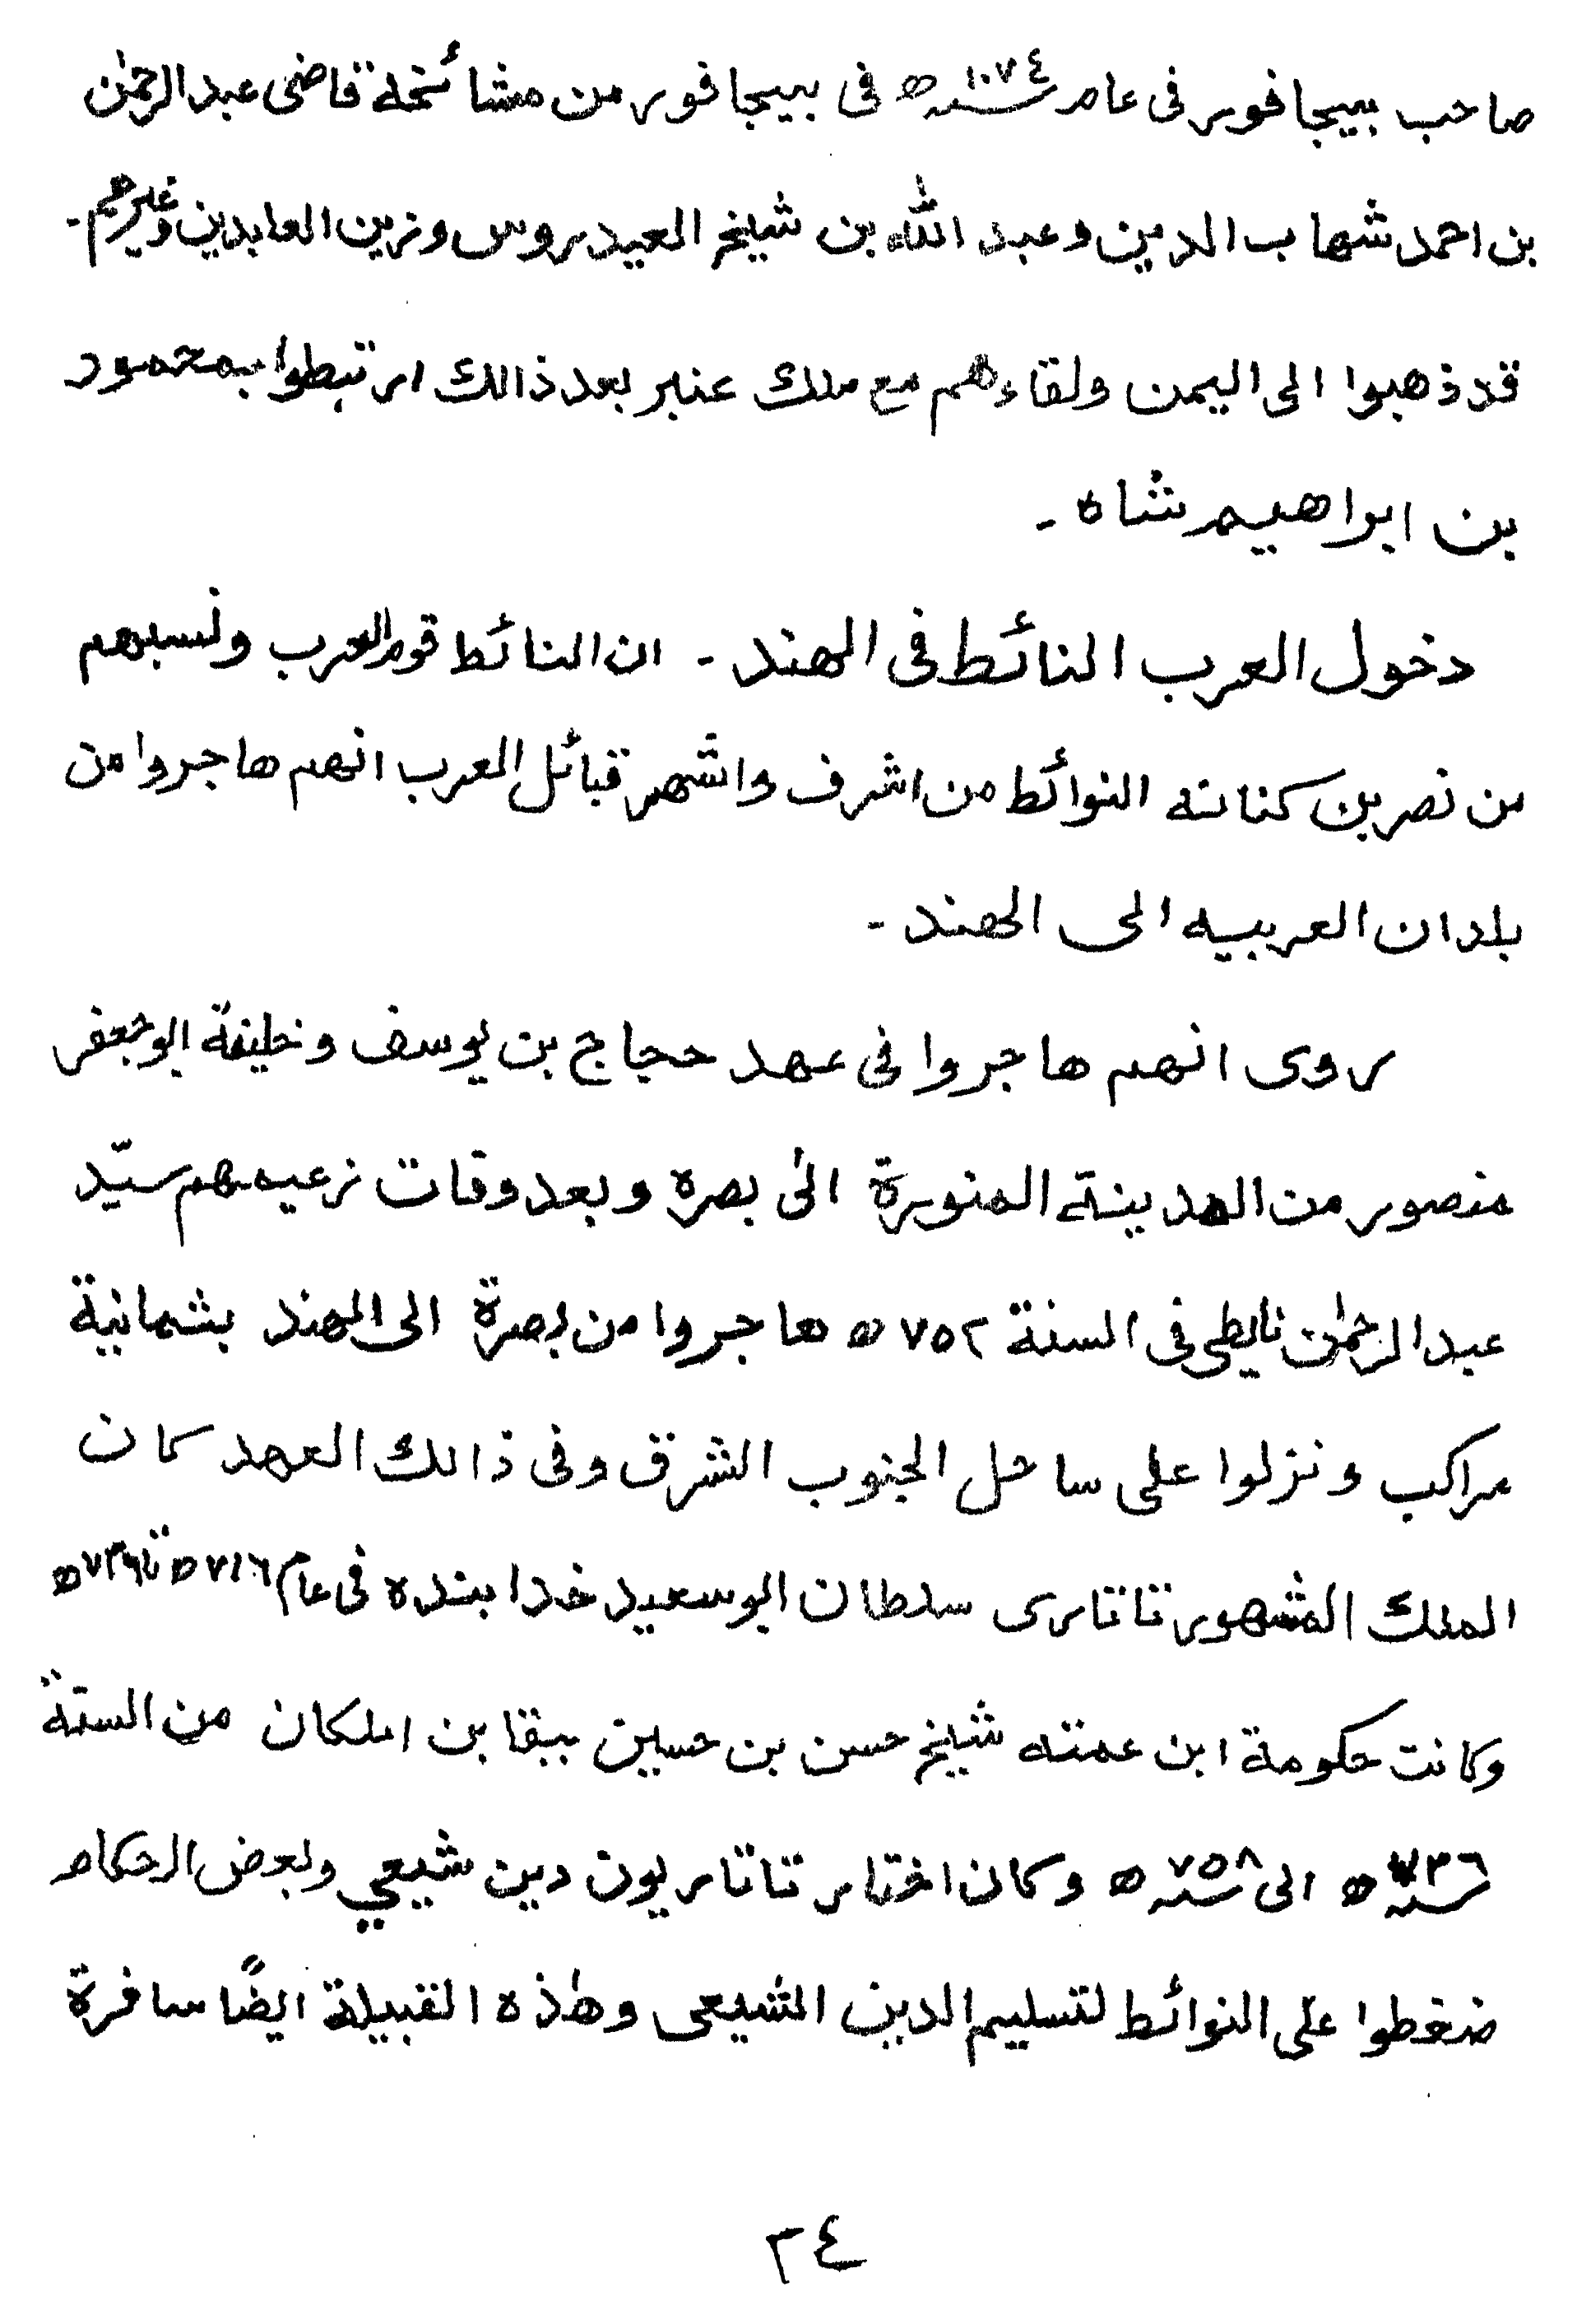 صاحب بيجافور فى عام سنة ١٠٧٤ھ فى بيجافور من مشائخة قاضى عبدالرحمٰن
بن احمد شهاب الدين وعبد اللّٰه بن شيخ العيدروس وزين العابدين وغيرهم۔
قد ذهبوا الى اليمن ولقاءهم مع ملك عنبر بعد ذالك ارتبطوا بمحمود
بن ابراهيم شاه ۔
دخول العرب النائط فى الهند ۔ ان النائط قوم العرب ونسبهم
من نصر بن كنانته النوائط من اشرف واشهر قبائل العرب انهم هاجروا من
بلدان العربيه الى الهند ۔
روى انهم هاجروا فى عهد حجاج بن يوسف وخليفة ابوجعفر
منصور من المدينة المنورة الىٰ بصره وبعد وفات زعيمهم سيّد
عبدالرحمٰن نايطى فى السنة ٧٥٢ھ هاجروا من بصرة الى الهند بثمانية
مراكب ونزلوا على ساحل الجنوب الشرق وفى ذالك العهد كان
الملك المشهور تاتارى سلطان ابوسعيد خدا بنده فى عام ٧١٦ھ تا ٧٣٦ھ
وكانت حكومة ابن عمته شيخ حسن بن حسين ببقا بن املكان من السنة
سنة ٧٣٦ھ الى سنة ٧٥٨ھ وكان اختار تاتاريون دين شيعي وبعض الحكام
ضغطوا على النوائط لتسليم الدين الشيعى وهٰذه القبيلة ايضًا سافرة
٣٤